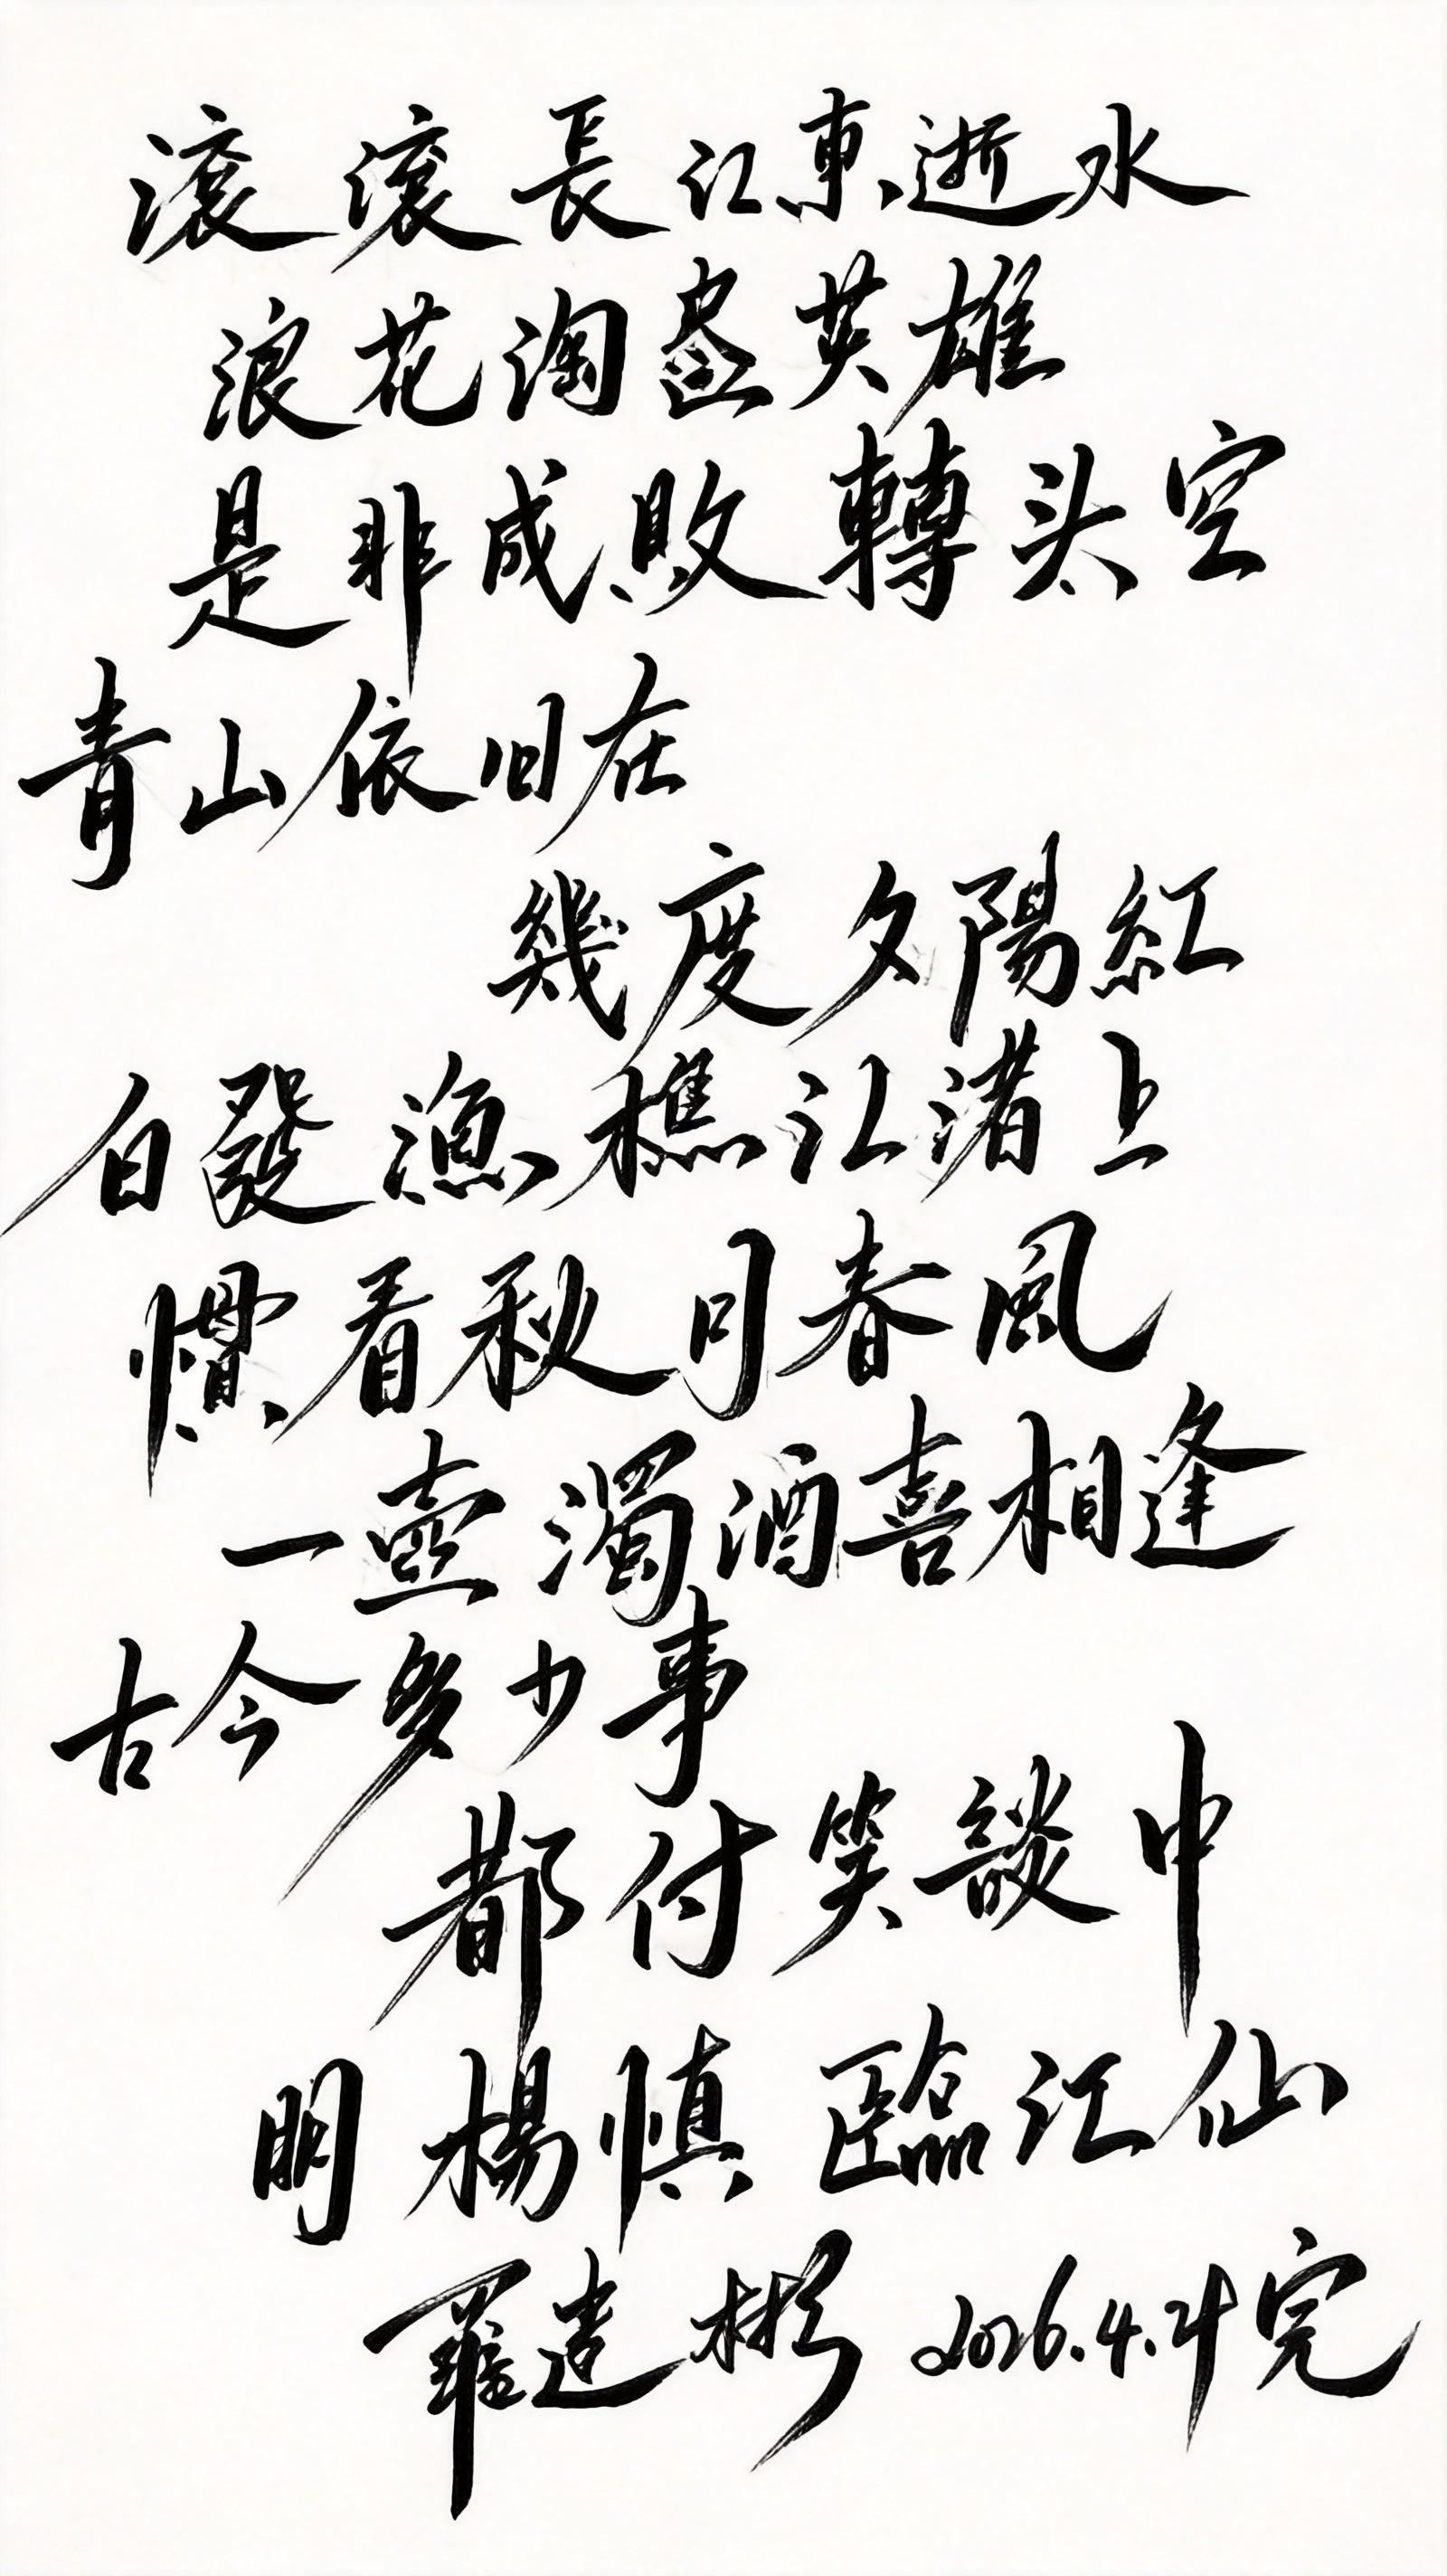 滚滚長江東逝水
浪花淘盡英雄
是非成敗轉头空
青山依旧在
幾度夕陽紅
白發漁樵江渚上
慣看秋月春風
一壺濁酒喜相逢
古今多少事
都付笑談中
明 楊慎 臨江仙
羅造彬 2026.4.21完